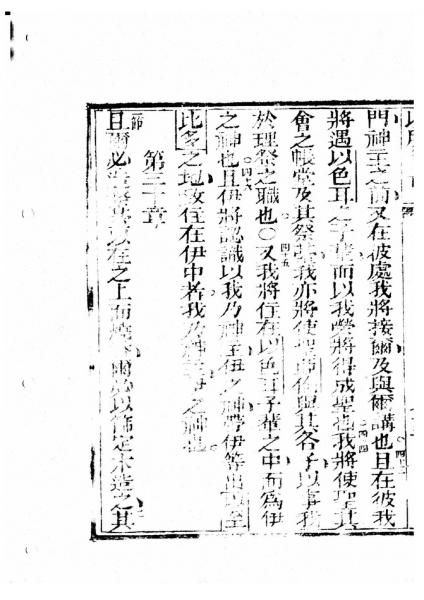 門神主之前又在彼處我將接爾及與爾講也且在彼我
將遇以色耳之子輩而以我榮將得成聖也四四我將使聖其
會之帳堂及其祭臺我亦將使聖師倫與其各子以事我
於理祭之職也〇四十五又我將住在以色耳子輩之中而為伊
之神也四十六且伊將認識以我乃神主伊之神帶伊等出以至
比多之地致住在伊中者我乃神主伊之神也
第三十章
節且爾必造祭臺以在之上而燒香爾必以偦定木造之其